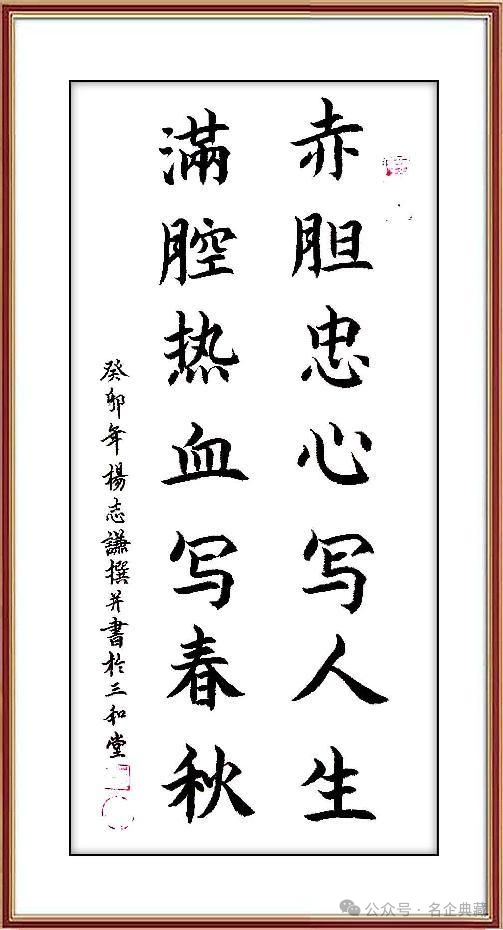 赤胆忠心写人生
滿腔热血写春秋
癸卯年楊志謙撰并書於三和堂
公众号·名企典藏